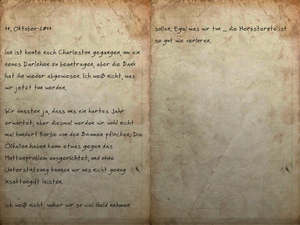 11. Oktober 1899
Ian ist heute nach Charleston gegangen, um ein
neues Darlehen zu beantragen, aber die Bank
hat ihn wieder abgewiesen. Ich weiß nicht, was
wir jetzt tun werden.
Wir wussten ja, dass uns ein hartes Jahr
erwartet, aber diesmal werden wir wohl nicht
mal hundert Körbe von den Bäumen pflücken. Die
Ölfallen haben kaum etwas gegen das
Mottenproblem ausgerichtet, und ohne
Unterstützung können wir uns nicht genug
Insektengift leisten.
Ich weiß nicht, woher wir so viel Geld nehmen
sollen. Egal was wir tun _ die Herbsternte ist
so gut wie verloren.